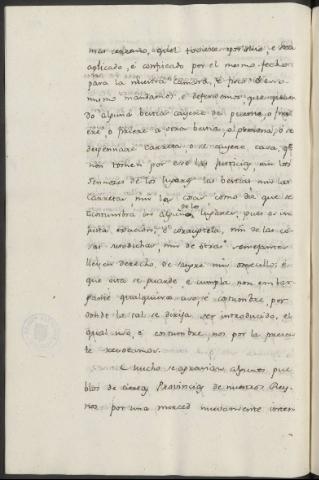 mas cercano, quel toviere por suio, e sea
aplicado, é confiscado por el mesmo fecho
para la nuestra Camara, é fisco: E otro
mismo mandamos, é defendemos, que quan-
do alguna bestia cayere de persona, o fray
ere, o firiere a otra bestia, o persona, o se
despennare Carreta, o se cayere casa, que
non tomen por esso las Justicias, nin los
Sennores de los lugares las bestias, nin las
Carretas, nin las casas como diz que se
acostumbra en algunos de los lugares, pues es in-
justa exaccion, é corruptela, nin de las co-
sas susodichas, nin de otras semejantes
lleven derecho de sangre nin omecillos, é
que esto se guarde, e cumpla, non embar-
gante qualquiera uso, é costumbre, por
donde la tal se dixesse ser introducido, el
qual uso, é costumbre, nos por la presen-
te revocamos.
E mucho se agravian algunos pue-
blos de ciertas Provincias de nuestros Rey-
nos por una merced nuevamente inven-